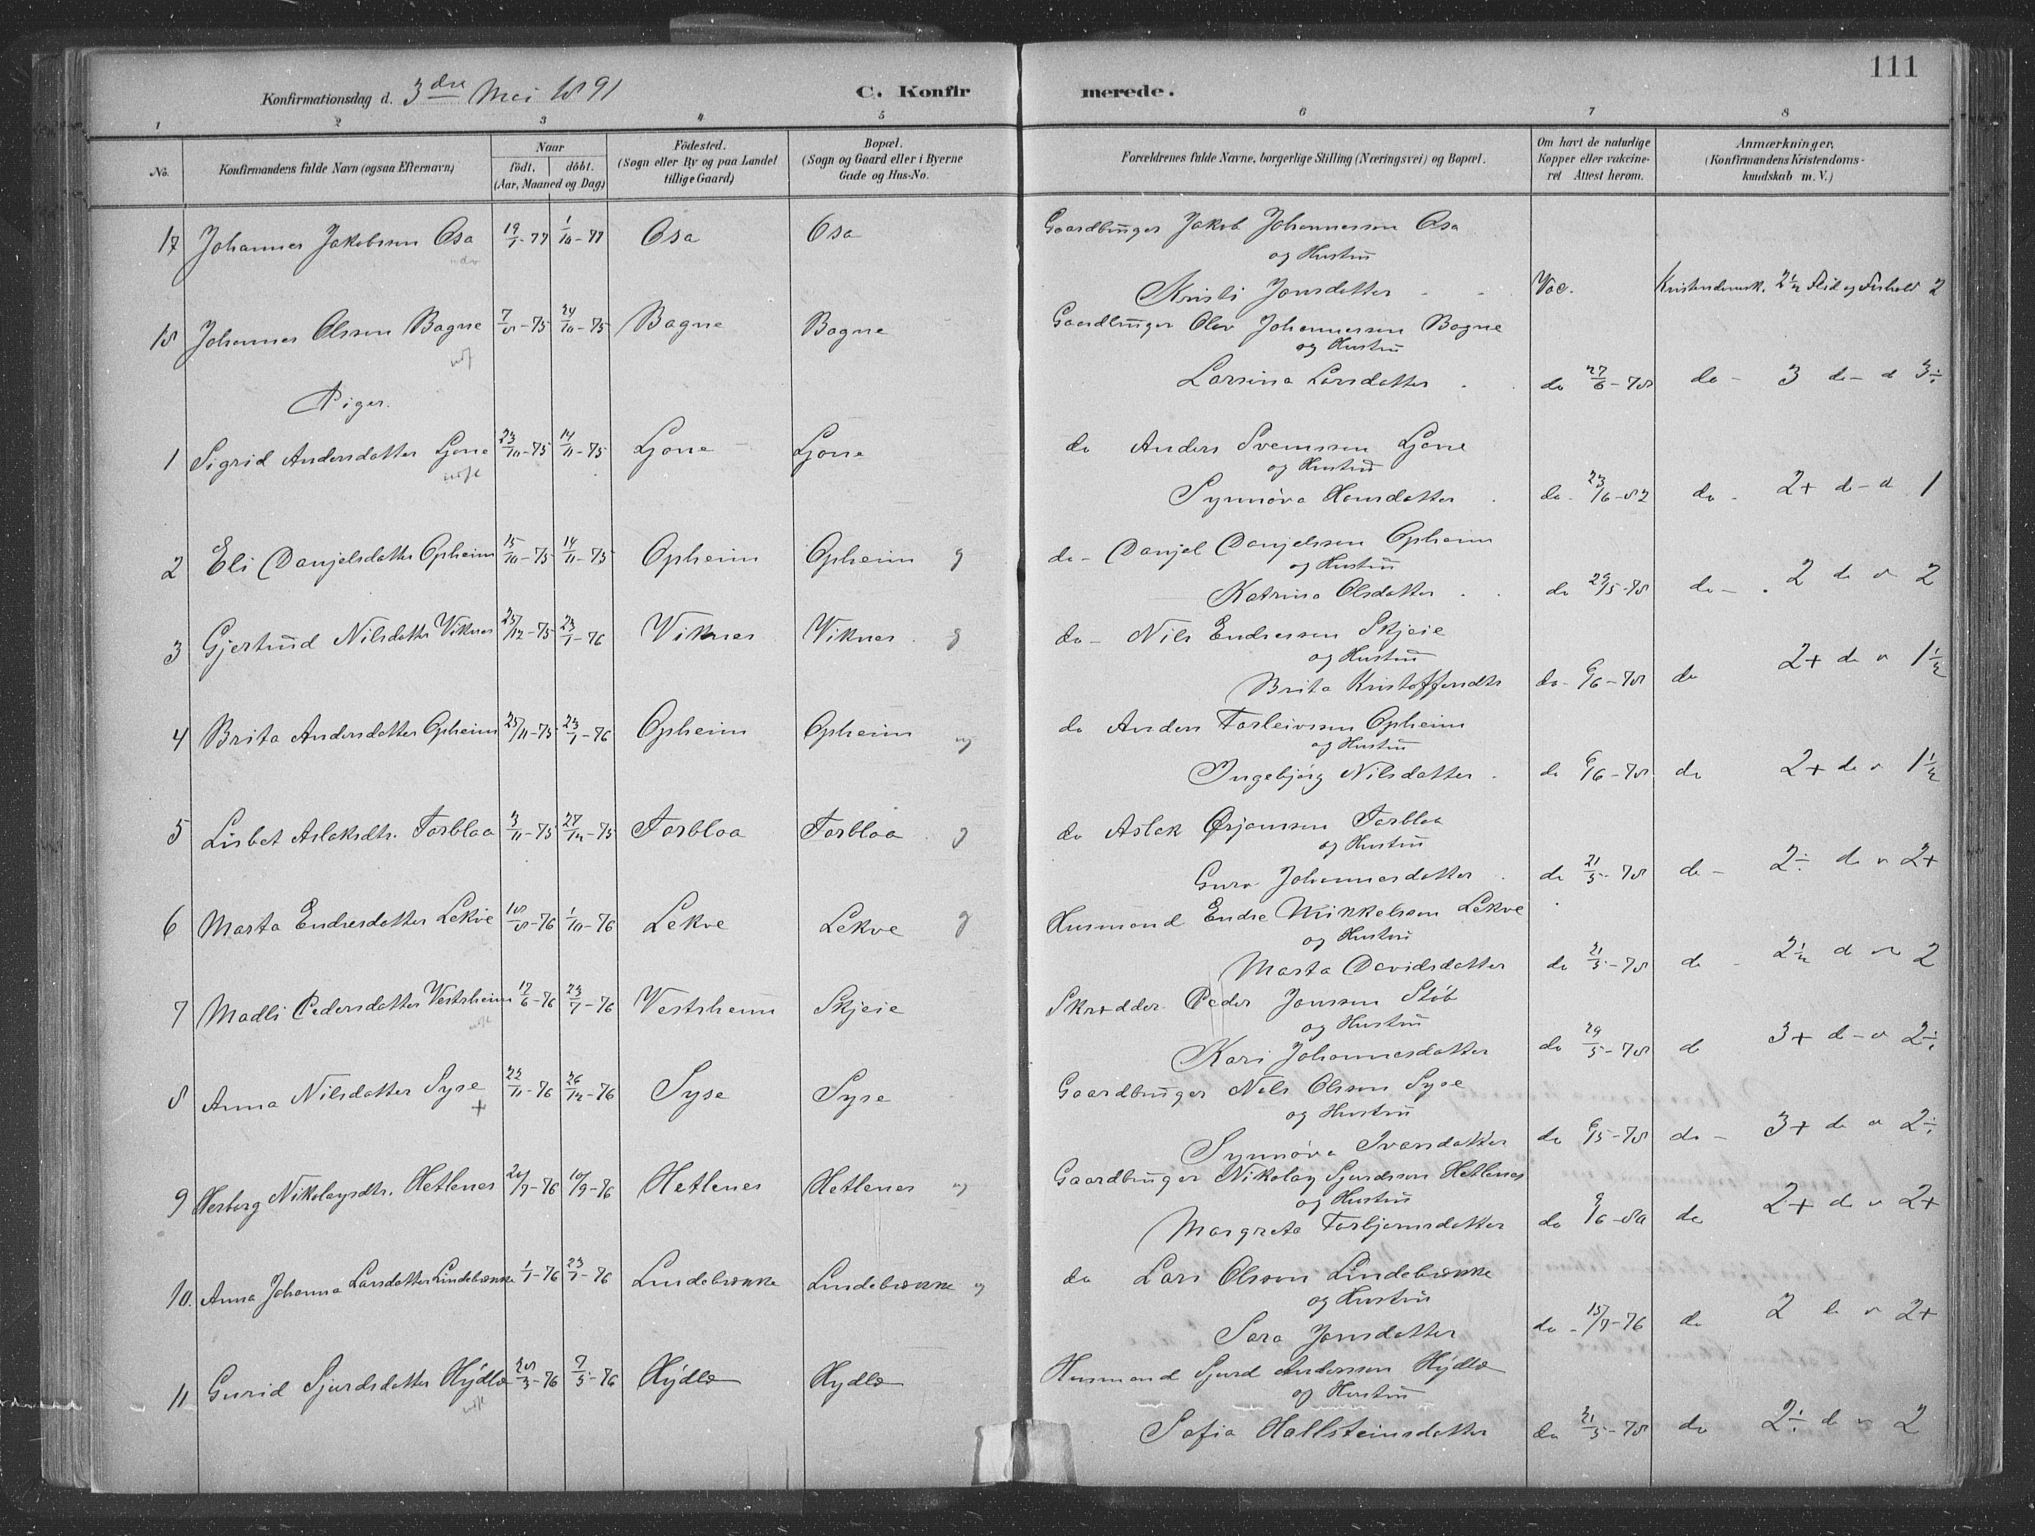 111
Konfirmationsdag d. 3dre Mai 1891
C. Konfirmerede.
1 2 3 4 5 6 7 8
No. Konfirmandens fulde Navn (ogsaa Efternavn) Naar født, døbt. (Aar, Maaned og Dag) Fødested. (Sogn eller By og paa Landet tillige Gaard) Bopæl. (Sogn og Gaard eller i Byerne Gade og Hus-No. Forældrenes fulde Navne, borgerlige Stilling (Næringsvei) og Bopæl. Om havt de naturlige Kopper eller vakcineret Attest herom. Anmærkninger, (Konfirmandens Kristendomskundskab m. V.)
17 Johannes Jakobssen Osa 1/10-77 Osa Osa Gaardbruger Jakob Johannessen Osa
og Hustru
Kristi Jonsdatter Vac. Kristendomsk. 2½ Flid og Forhold 2
18 Johannes Olssen Bagne 7/8-75 24/10-75 Bagne Bagne Gaardbruger Olav Johannessen Bagne
og Hustru
Larsina Larsdatter do 27/6-78 do - 3 do - d 3÷
Piger.
1 Sigrid Andersdatter Ljone 23/10-75 14/11-75 Ljone Ljone do Anders Svenssen Ljone
og Hustru
Synnøva Hansdatter do 23/6-82 do - 2+ do - d 1
2 Eli Danjelsdatter Opheim 15/10-75 14/11-75 Opheim Opheim g do - Danjel Danjelssen Opheim
og Hustru
Katrina Olsdatter do 29/5-78 do - 2 do " 2
3 Gjertrud Nilsdatter Viknes 25/12-75 23/1-76 Viknes Viknes g do - Nils Endressen Skjeie
og Hustru
Brita Kristoffersdtr do 6/6-78 do 2+ do " 1½
4 Brita Andersdatter Opheim 25/11-75 23/1-76 Opheim Opheim do Anders Torleivssen Opheim
og Hustru
Ingebjörg Nilsdatter do 6/6-78 do 2+ do " 1½
5 Lisbet Aslaksdtr. Torbloa 3/11-75 27/12-75 Torbloa Torbloa g do Aslak Ørjanssen Torbloa
og Hustru
Guro Johannesdatter do 21/5-78 do - 2÷ do " 2+
6 Marta Endresdatter Lekve 18/8-76 1/10-76 Lekve Lekve g Husmand Endre Mikkelssen Lekve
og Hustru
Marta Davidsdatter do 21/5-78 do 2½ do " 2
7 Madli Pedersdatter Vestrheim 17/6-76 23/7-76 Vestrheim Skjeie Skrædder Peder Jonssen Støb
og Hustru
Kari Johannesdatter do 29/5-78 do 3+ do - " 2÷
8 Anna Nilsdatter Syse + 22/11-76 26/12-76 Syse Syse Gaardbruger Nils Olssen Syse
og Hustru
Synnøva Ivarsdatter do 6/5-78 do - 3+ do " 2÷
9 Herborg Nikolaysdtr. Hetlenes 20/7-76 10/9-76 Hetlenes Hetlenes Gaardbruger Nikolay Sjurdssen Hetlenes
og Hustru
Margreta Torbjørnsdatter do do 2+ do " 2+
10. Anna Johanna Larsdatter Lindebrække 1/1-76 23/1-76 Lindebrække Lindebrække do Lars Olssen Lindebrække
og Hustru
Sara Jonsdatter do - 15/7-76 do 2 do " 2+
11 Gurid Sjurdsdatter Hydle 28/3-76 7/5-76 Hydle Hydle Husmand Sjurd Anderssen Hydle
og Hustru
Sofia Hallsteinsdatter do 21/5-78 do 2÷ do " 2